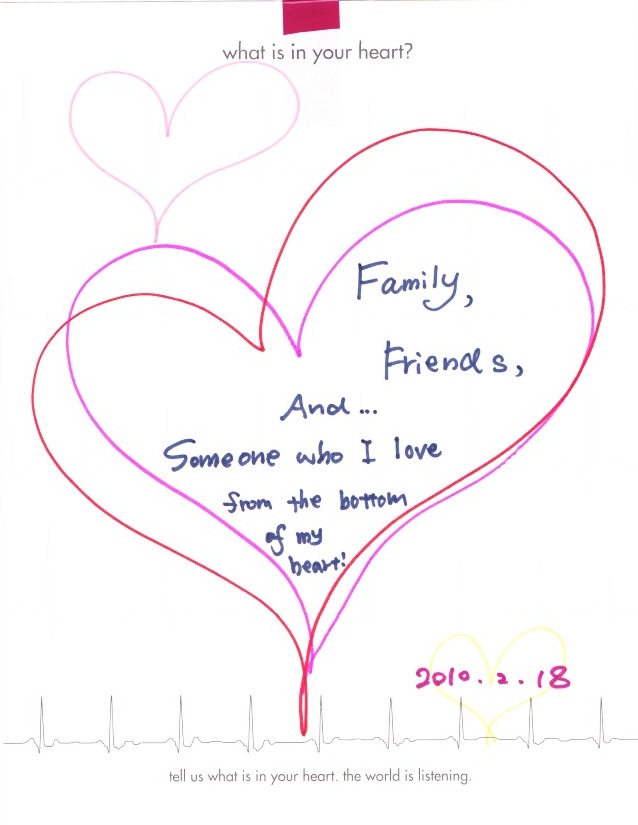 what is in your heart?
Family,
Friends,
And...
Someone who I love
from the bottom
of my
heart!
2010.2.18
tell us what is in your heart. the world is listening.